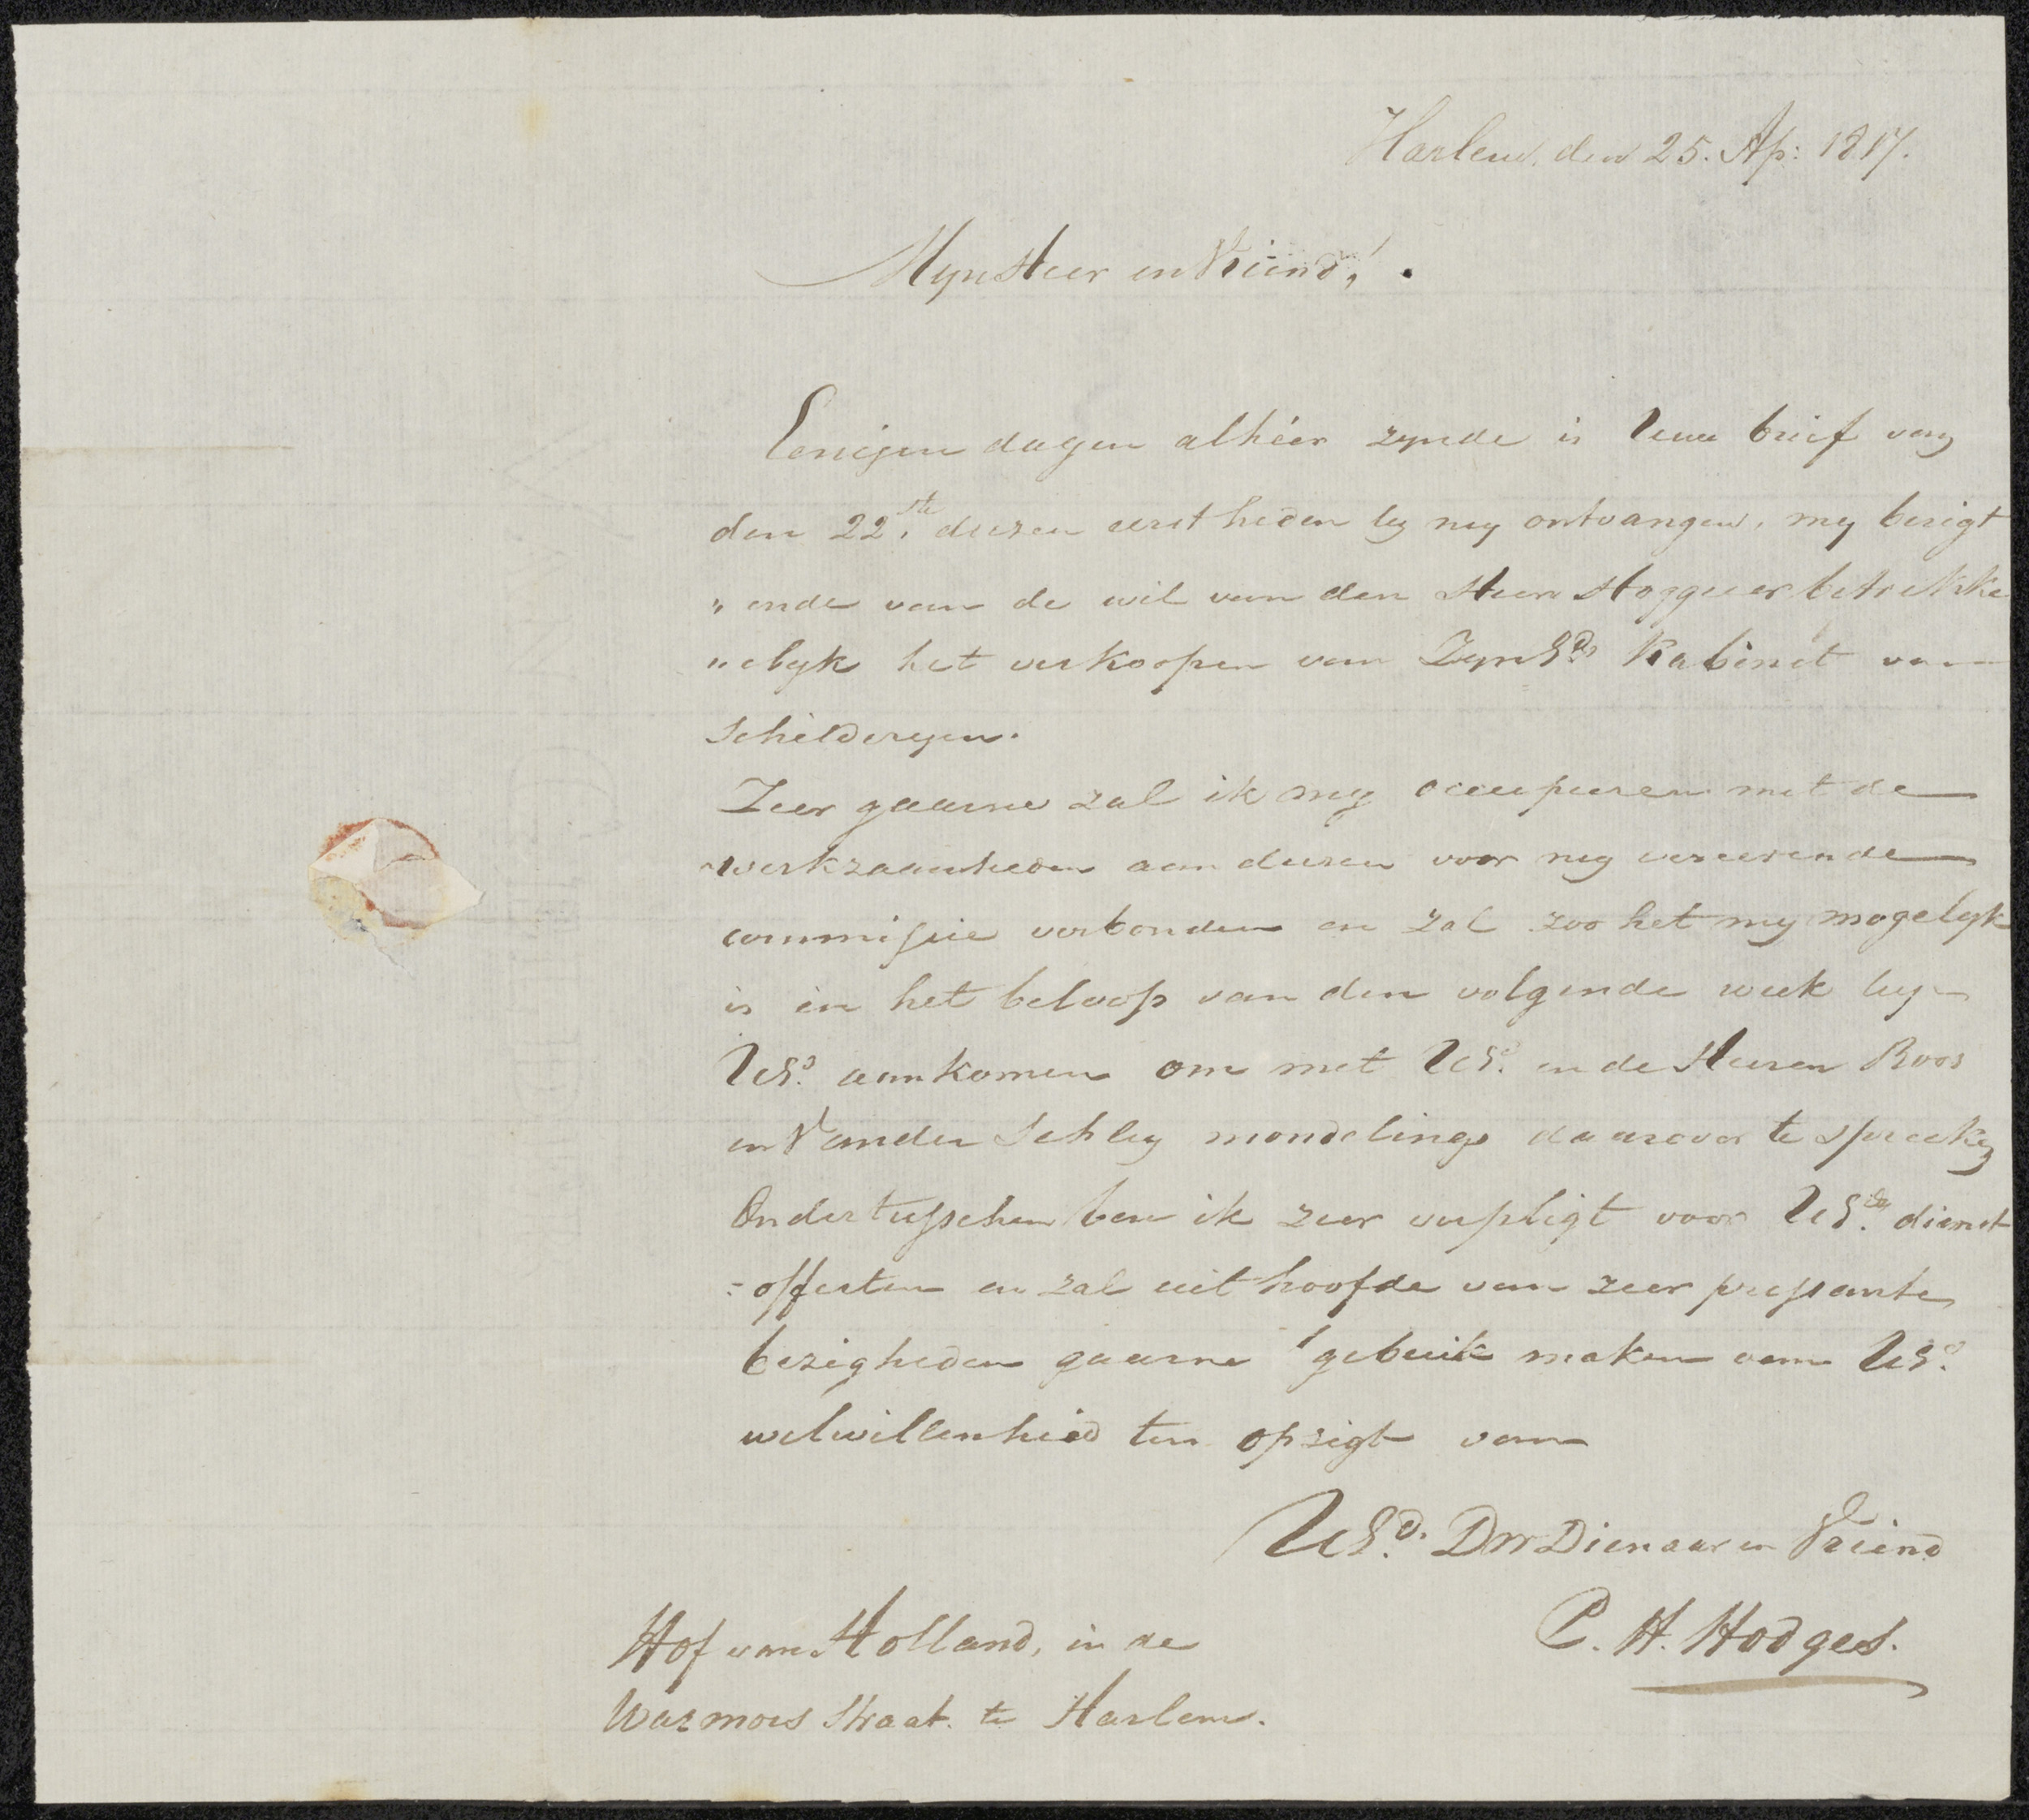 Harlem, den 25. Ap: 1817.
Myn Heer en Vriend,!
Eenigen dagen alhier zynde is Uwe brief van
den 22.ste deezen eerst heden by my ontvangen, my berigt
„ ende van de wil van den Heer Hogguer betrekke
„elyk het verkoopen van ZynEds Kabinet van
Schilderyen.
Zeer gaarne zal ik my occupeeren met de
werkzaamheden aan deezen voor my vereerende
commissie verbonden en zal zoo het my mogelyk
is in het beloop van den volgende week by
UEd. aankomen om met UEd. en de Heeren Roos
en Vander Schley mondelings daarover te spreeken
Ondertusschen ben ik zeer verpligt voor UEds. dienst
=offerten en zal uit hoofde van zeer pressante
bezigheden gaarne gebruik maken van UEd.
welwillenheid ten opzigt van
UEd. DW Dienaar en Vriend
C. H. Hodges.
Hof van Holland, in de
Warmoes Straat te Harlem.